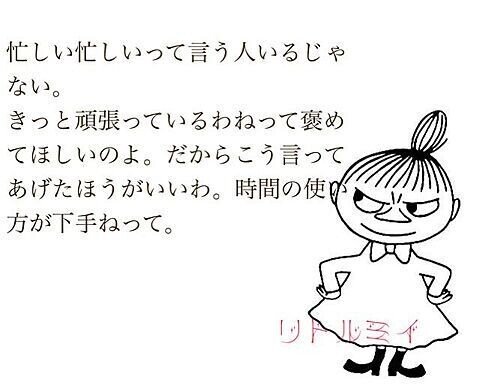 忙しい忙しいって言う人いるじゃ
ない。
きっと頑張っているわねって褒め
てほしいのよ。だからこう言って
あげたほうがいいわ。時間の使い
方が下手ねって。
リトルミイ